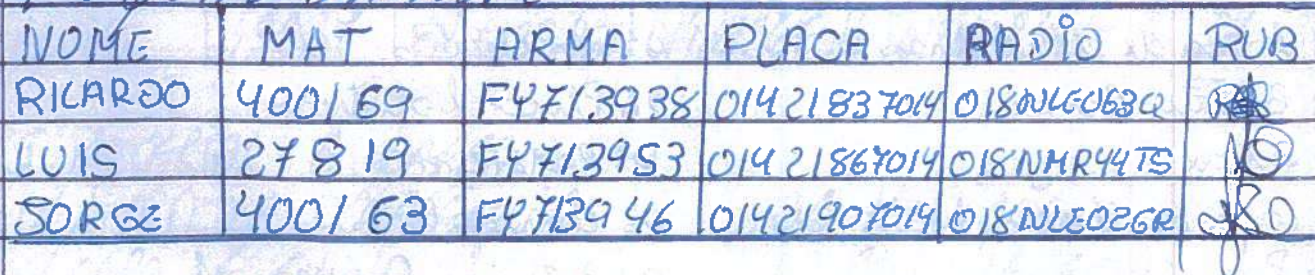 NOME MAT ARMA PLACA RADIO RUB
RICARDO 400169 FY713938 01421837014 018NLE063Q
LUIS 27819 FY713953 01421867014 018NMR44TS
JORGE 400163 FY713946 01421907014 018NLE0Z6R